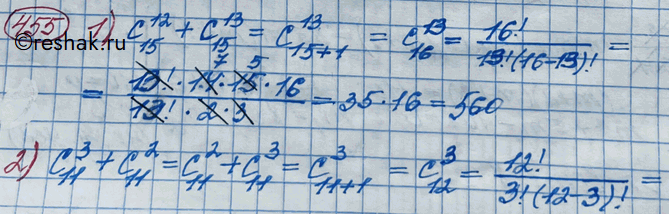 455 1) C₁₅¹² + C₁₅¹³ = C₁₅₊₁¹³ = C₁₆¹³ = 16! / 13!(16-13)! =
©reshak.ru
= 13! · 14 7 · 15 5 · 16 / 13! · 2 · 3 = 35 · 16 = 560
2) C₁₁³ + C₁₁² = C₁₁² + C₁₁³ = C₁₁₊₁³ = C₁₂³ = 12! / 3!(12-3)! =